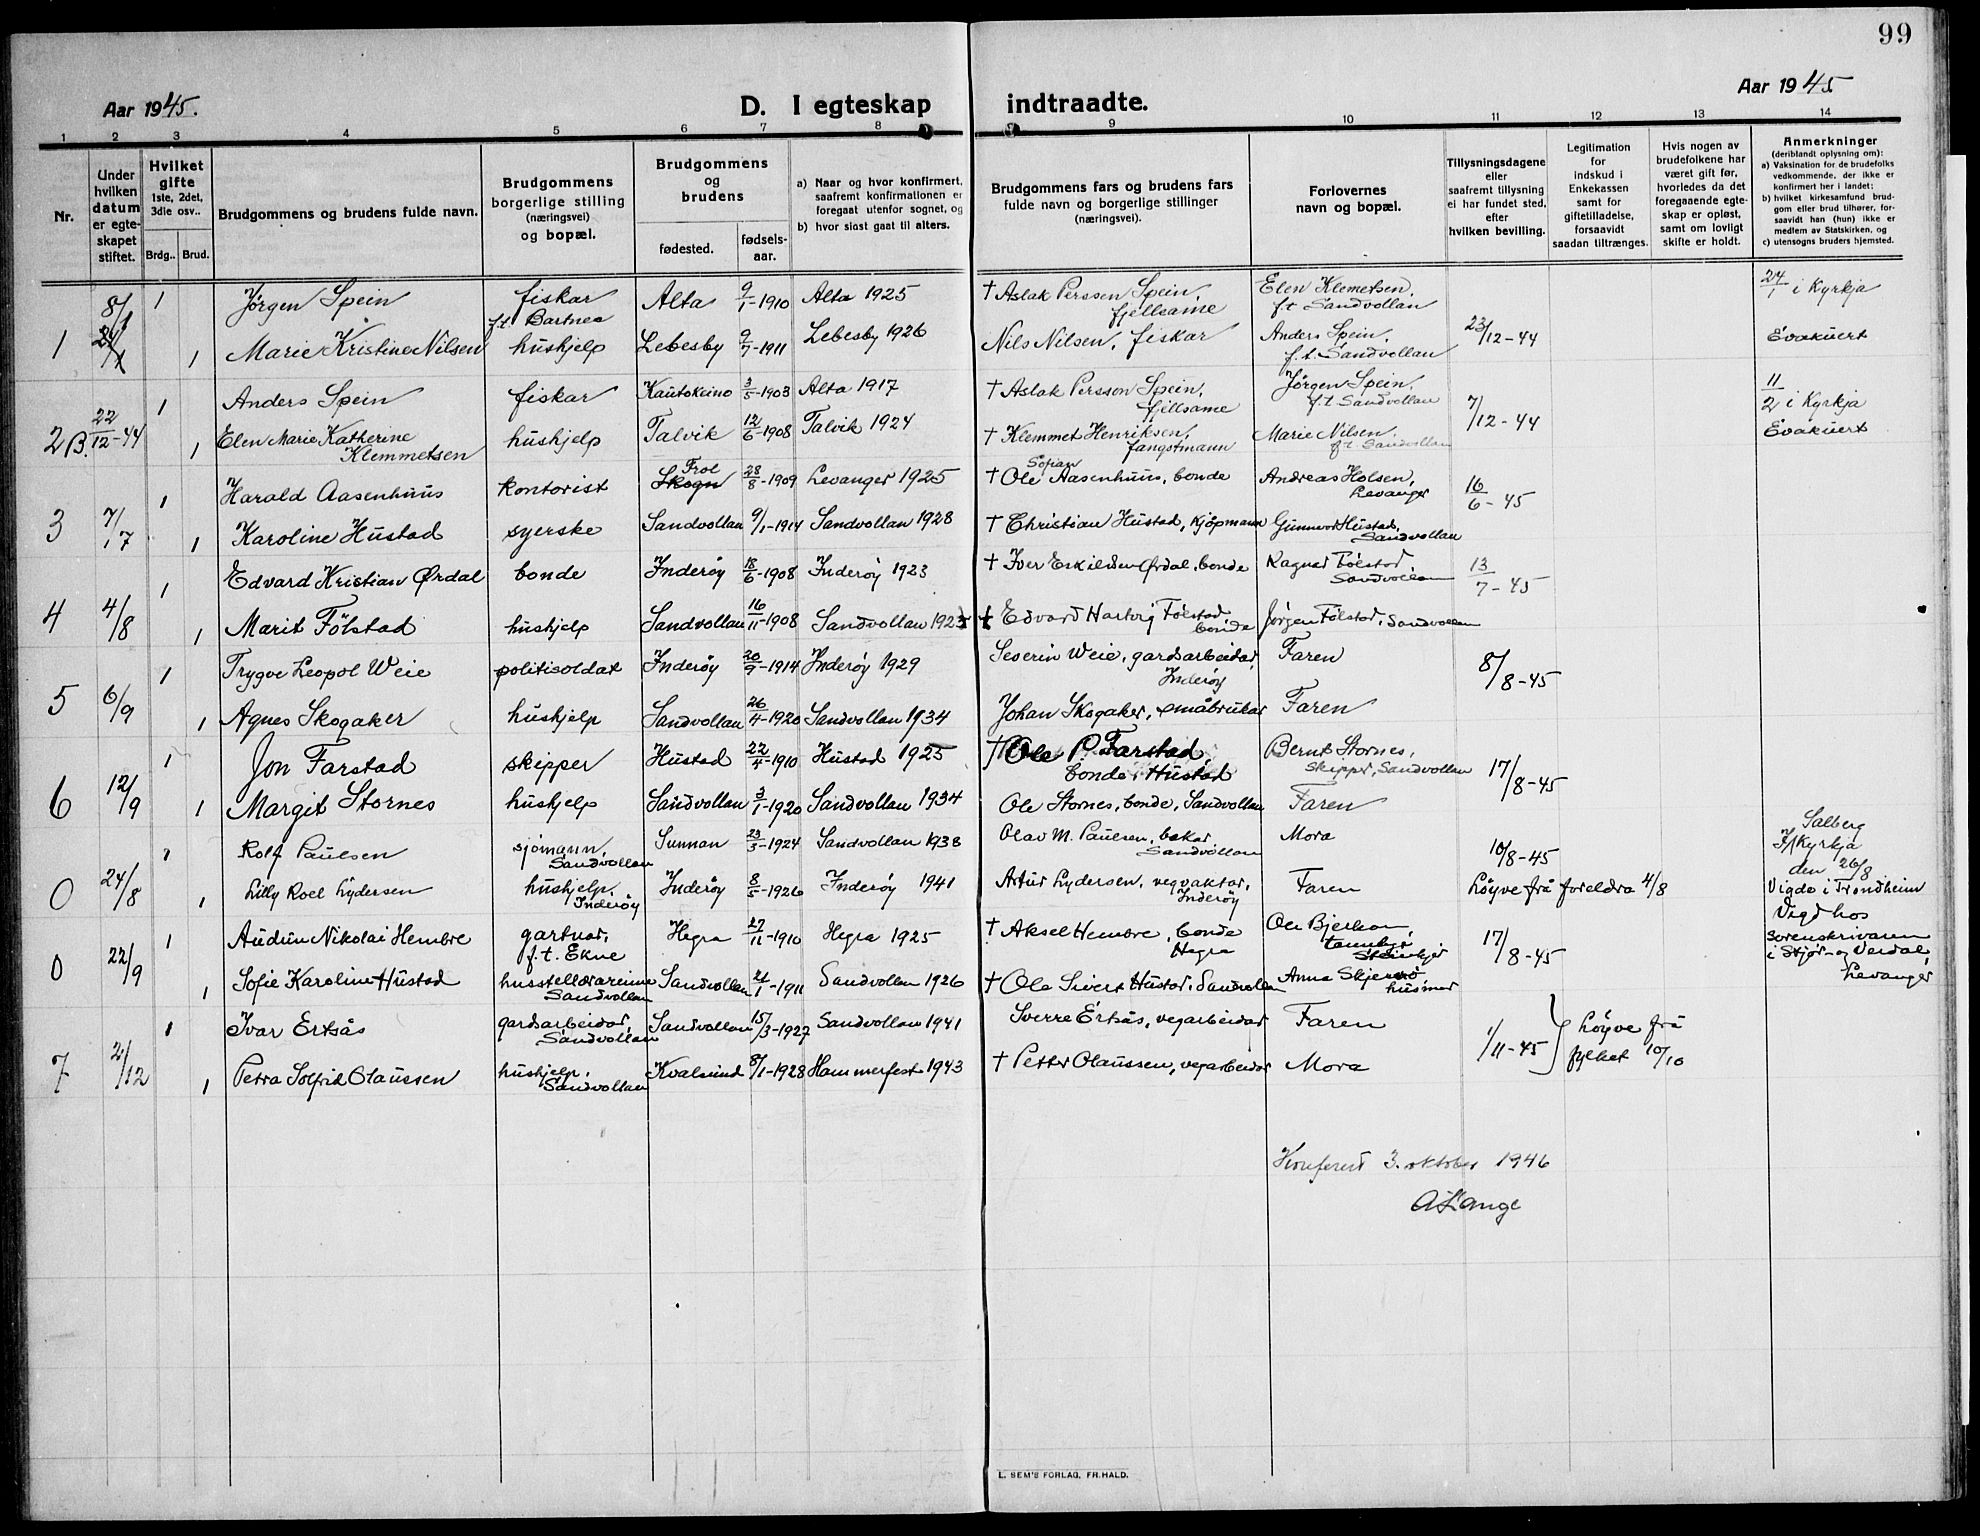 99
Aar 1945.
D. I egteskap indtraadte.
Aar 1945
1 2 3 4 5 6 7 8 9 10 11 12 13 14
Nr.
Under hvilken datum er egte-skapet stiftet.
Hvilket gifte 1ste, 2det, 3die osv..
Brdg.. Brud.
Brudgommens og brudens fulde navn.
Brudgommens borgerlige stilling (næringsvei) og bopæl.
Brudgommens og brudens
fødested. fødsels-aar.
a) Naar og hvor konfirmert, saafremt konfirmationen er foregaat utenfor sognet, og
b) hvor sidst gaat til alters.
Brudgommens fars og brudens fars fulde navn og borgerlige stillinger (næringsvei).
Forlovernes navn og bopæl.
Tillysningsdagene eller saafremt tillysning ei har fundet sted, efter hvilken bevilling.
Legitimation for indskud i Enkekassen samt for giftetilladelse, forsaavidt saadan tiltrænges.
Hvis nogen av brudefolkene har været gift før, hvorledes da det foregaaende egte-skap er opløst, samt om lovligt skifte er holdt.
Anmerkninger (deriblandt oplysning om):
a) Vaksination for de brudefolks vedkommende, der ikke er konfirmert her i landet;
b) hvilket kirkesamfund brud-gom eller brud tilhører, for-saavidt han (hun) ikke er medlem av Statskirken, og
c) utensogns bruders hjemsted.
8/1 1 Jørgen Spein fiskar f.t. Bartnes Alta 9/1-1910 Alta 1925 † Aslak Persson Spein, fjellsame Elen Klemetsen, f.t. Sandvollan 24/1 i Kyrkja
1 1 Marie Kristine Nilsen hushjelp Lebesby 9/7-1911 Lebesby 1926 Nils Nilsen, fiskar Anders Spein, f.t. Sandvollan 23/12-44 Evakuert
1 Anders Spein fiskar Kautokeino 3/5-1903 Alta 1917 † Aslak Persson Spein, fjellsame Jørgen Spein, f.t. Sandvollan 11/2 i Kyrkja
2 B. 22/12-44 1 Elen Marie Katherine Klemmetsen hushjelp Talvik 12/6-1908 Talvik 1924 † Klemmet Henriksen, fangstmann Marie Nilsen, f.t. Sandvollan 7/12-44 Evakuert
1 Harald Aasenhuus kontorist Skogn Frol 28/8-1909 Levanger 1925 † Ole Sofian Aasenhuus, bonde Andreas Holsen, Levanger 16/6-45
3 7/7 1 Karoline Hustad syerske Sandvollan 9/1-1914 Sandvollan 1928 † Christian Hustad, kjøpmann Gunnvor Hustad, Sandvollan
1 Edvard Kristian Ørdal bonde Inderøy 18/6-1908 Inderøy 1923 † Iver Eskildsen Ørdal, bonde Ragnar Følstad Sandvollan 13/7-45
4 4/8 1 Marit Følstad hushjelp Sandvollan 16/11-1908 Sandvollan 1923 † Edvard Hartvig Følstad, bonde Jørgen Følstad, Sandvollan
1 Trygve Leopol Weie politisoldat Inderøy 20/9-1914 Inderøy 1929 Severin Weie, gardsarbeidar, Inderøy Faren 8/8-45
5 6/9 1 Agnes Skogaker hushjelp Sandvollan 26/4-1920 Sandvollan 1934 Johan Skogaker, småbrukar Faren
1 Jon Farstad skipper Hustad 22/4-1910 Hustad 1925 † Ole P. Farstad, bonde i Hustad Bernt Stornes, skippr, Sandvollan 17/8-45
6 12/9 1 Margit Stornes hushjelp Sandvollan 3/1-1920 Sandvollan 1934 Ole Stornes, bonde, Sandvollan Faren
1 Rolf Paulsen sjømann, Sandvollan Sunnan 23/3-1924 Sandvollan 1938 Olav M. Paulsen, bakar Sandvollan Mora 10/8-45 Salberg Kyrkja den 26/8
0 24/8 1 Lilly Roel Lydersen hushjelp, Inderøy Inderøy 8/5-1926 Inderøy 1941 Artur Lydersen, vegvaktar, Inderøy Faren Løyve frå foreldra 4/8 Vigde i Trondheim
1 Audun Nikolai Hembre gartnar, f.t. Ekne Hegra 27/11-1910 Hegra 1925 † Aksel Hembre, bonde Hegra Ole Bjerkan, Steinkjer 17/8-45 Vigd hos sorenskrivaren i Stjør- og Verdal, Levanger
0 22/9 1 Sofie Karoline Hustad husstellærarinne Sandvollan Sandvollan 21/1-1911 Sandvollan 1926 † Ole Sivert Hustad, Sandvollan Anna Skjervø husmor
1 Ivar Ertsås gardsarbeidar, Sandvollan Sandvollan 15/3-1927 Sandvollan 1941 Sverre Ertsås, vegarbeidar Faren 1/11-45 Løyve frå fylket 10/10
7 2/12 1 Petra Solfrid Olaussen hushjelp, Sandvollan Kvalsund 8/1-1928 Hammerfest 1943 † Petter Olaussen, vegarbeidar Mora
Konferert 3. oktober 1946
A Lange
L. SEM'S FORLAG, FR.HALD.